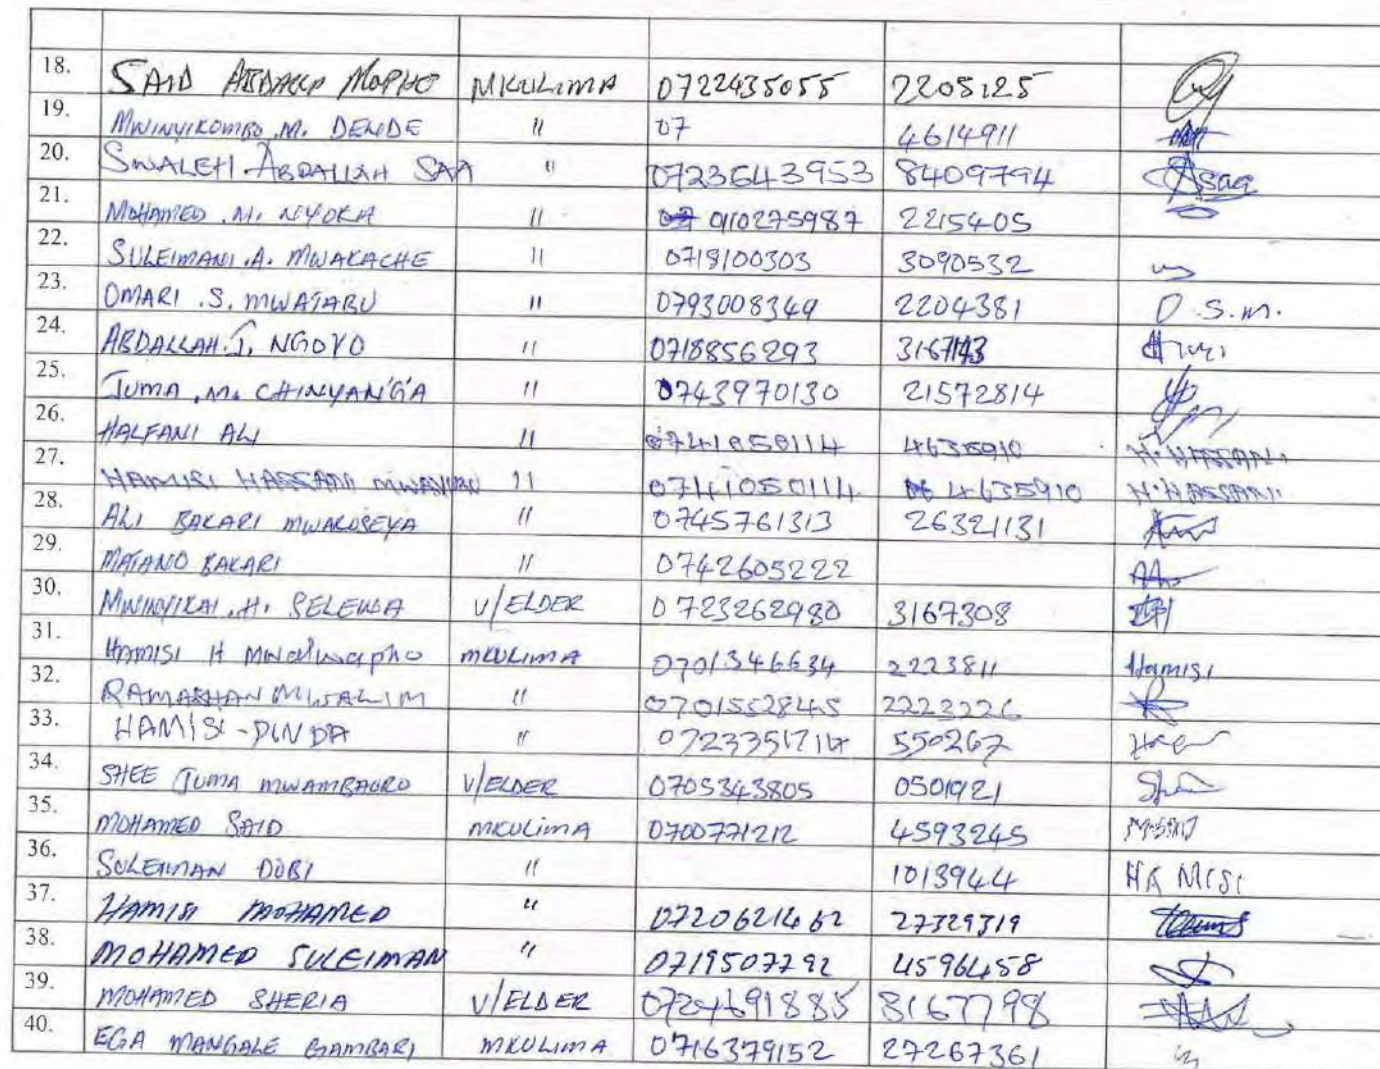 18. SAID ABDALLA MAPHO MKULIMA 0722435055 2205125
19. MWINYIKOMBO .M. DENDE " 07 4614911
20. SWALEH ABDALLAH SAA " 0723643953 8409794 Asaa
21. MOHAMED .M. NYOKA " 0110275987 2215405
22. SULEIMANI .A. MWAKACHE " 0718100303 3090532
23. OMARI .S. MWATABU " 0793008349 2204381 O.S.M.
24. ABDALLAH .J. NGOYO " 0718856293 3167143
25. JUMA .M. CHINYAN'GA " 0743970130 21572814
26. HALFANI ALI " 0741050114 4635910 H.HASSANI
27. HAMISI HASSANI " 0741050114 4635910 H.HASSANI
28. ALI BAKARI " 0745761313 26321131
29. MATANO BAKARI " 0742605222
30. MWINYIKAI .H. SELEWA V/ELDER 0723262980 3167308
31. HAMISI H Mwalwapho MKULIMA 0701346634 2223811 Hamisi
32. RAMADHAN MWALIM " 0701552845 2223226
33. HAMISI - DINDA " 550267
34. SHEE JUMA V/ELDER 0705343805 0501921
35. MOHAMED SAID MKULIMA 0700771212 4593245 M.SAID
36. SULEIMAN DOBI " 1013944 HAMISI
37. HAMISI MOHAMED " 0720621462 27329319
38. MOHAMED SULEIMAN " 0719507792 4596458
39. MOHAMED SHERIA V/ELDER 0724691885 3167798
40. EGA MANGALE GAMBARI MKULIMA 0716379152 27267361